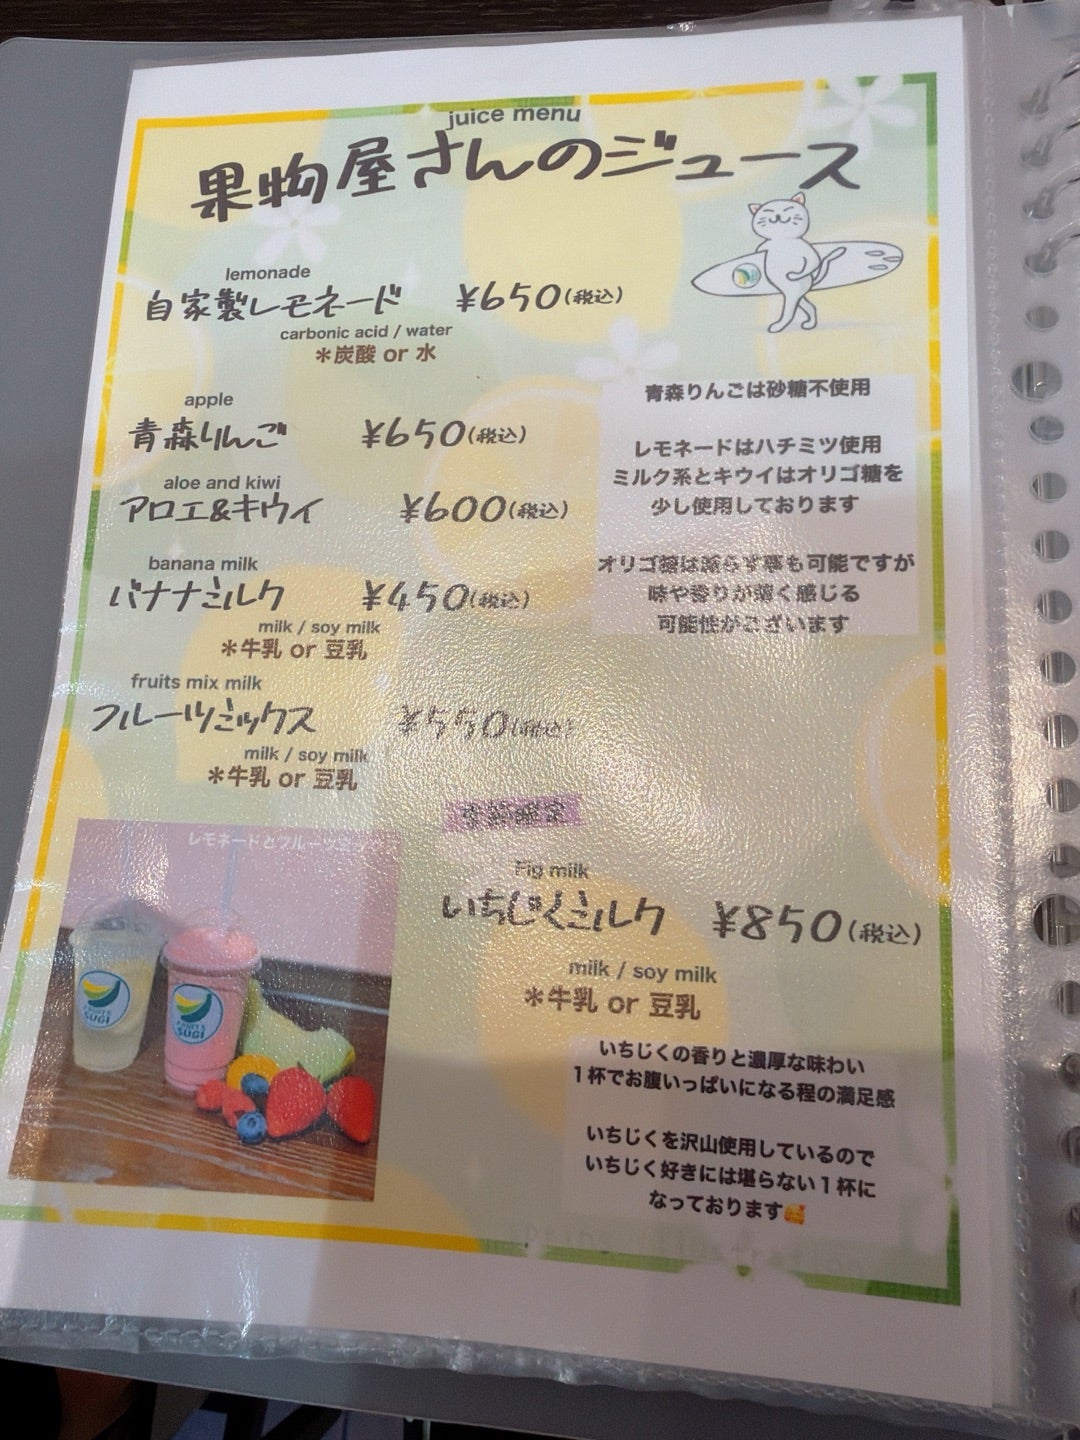 juice menu
果物屋さんのジュース
lemonade
自家製レモネード ¥650(税込)
carbonic acid / water
＊炭酸 or 水
apple
青森りんご ¥650(税込)
aloe and kiwi
アロエ&キウイ ¥600(税込)
banana milk
バナナミルク ¥450(税込)
milk / soy milk
＊牛乳 or 豆乳
fruits mix milk
フルーツミックス ¥550(税込)
milk / soy milk
＊牛乳 or 豆乳
青森りんごは砂糖不使用
レモネードはハチミツ使用
ミルク系とキウイはオリゴ糖を
少し使用しております
オリゴ糖は減らす事も可能ですが
味や香りが薄く感じる
可能性がございます
季節限定
Fig milk
いちじくミルク ¥850(税込)
milk / soy milk
＊牛乳 or 豆乳
いちじくの香りと濃厚な味わい
1杯でお腹いっぱいになる程の満足感
いちじくを沢山使用しているので
いちじく好きには堪らない1杯に
なっております🥰
レモネードとフルーツミックス
FRUITS
SUGI
FRUITS
SUGI